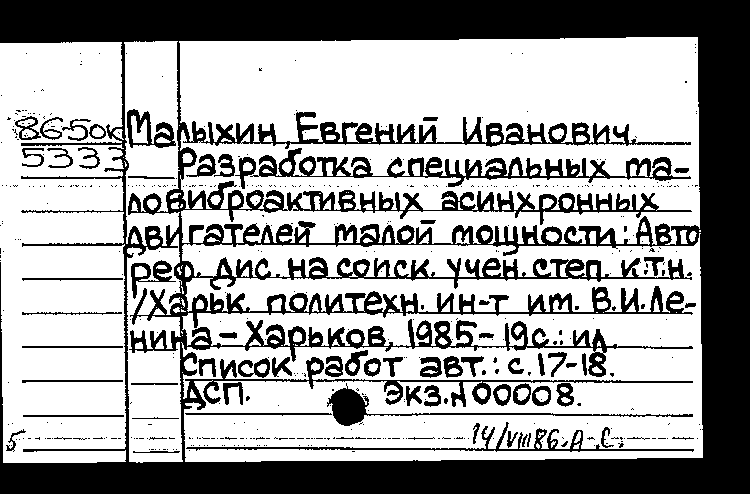 86-5ок Малыхин, Евгений Иванович.
5333 Разработка специальных ма-
ловиброактивных асинхронных
двигателей малой мощности: Авто
реф. дис. на соиск. учен. степ. к.т.н.
/Харьк. политехн. ин-т им. В.И.Ле-
нина.- Харьков, 1985.- 19с.: ил.
Список работ авт.: с.17-18.
ДСП. Экз.№00008.
5 14/VIII86. А-С.